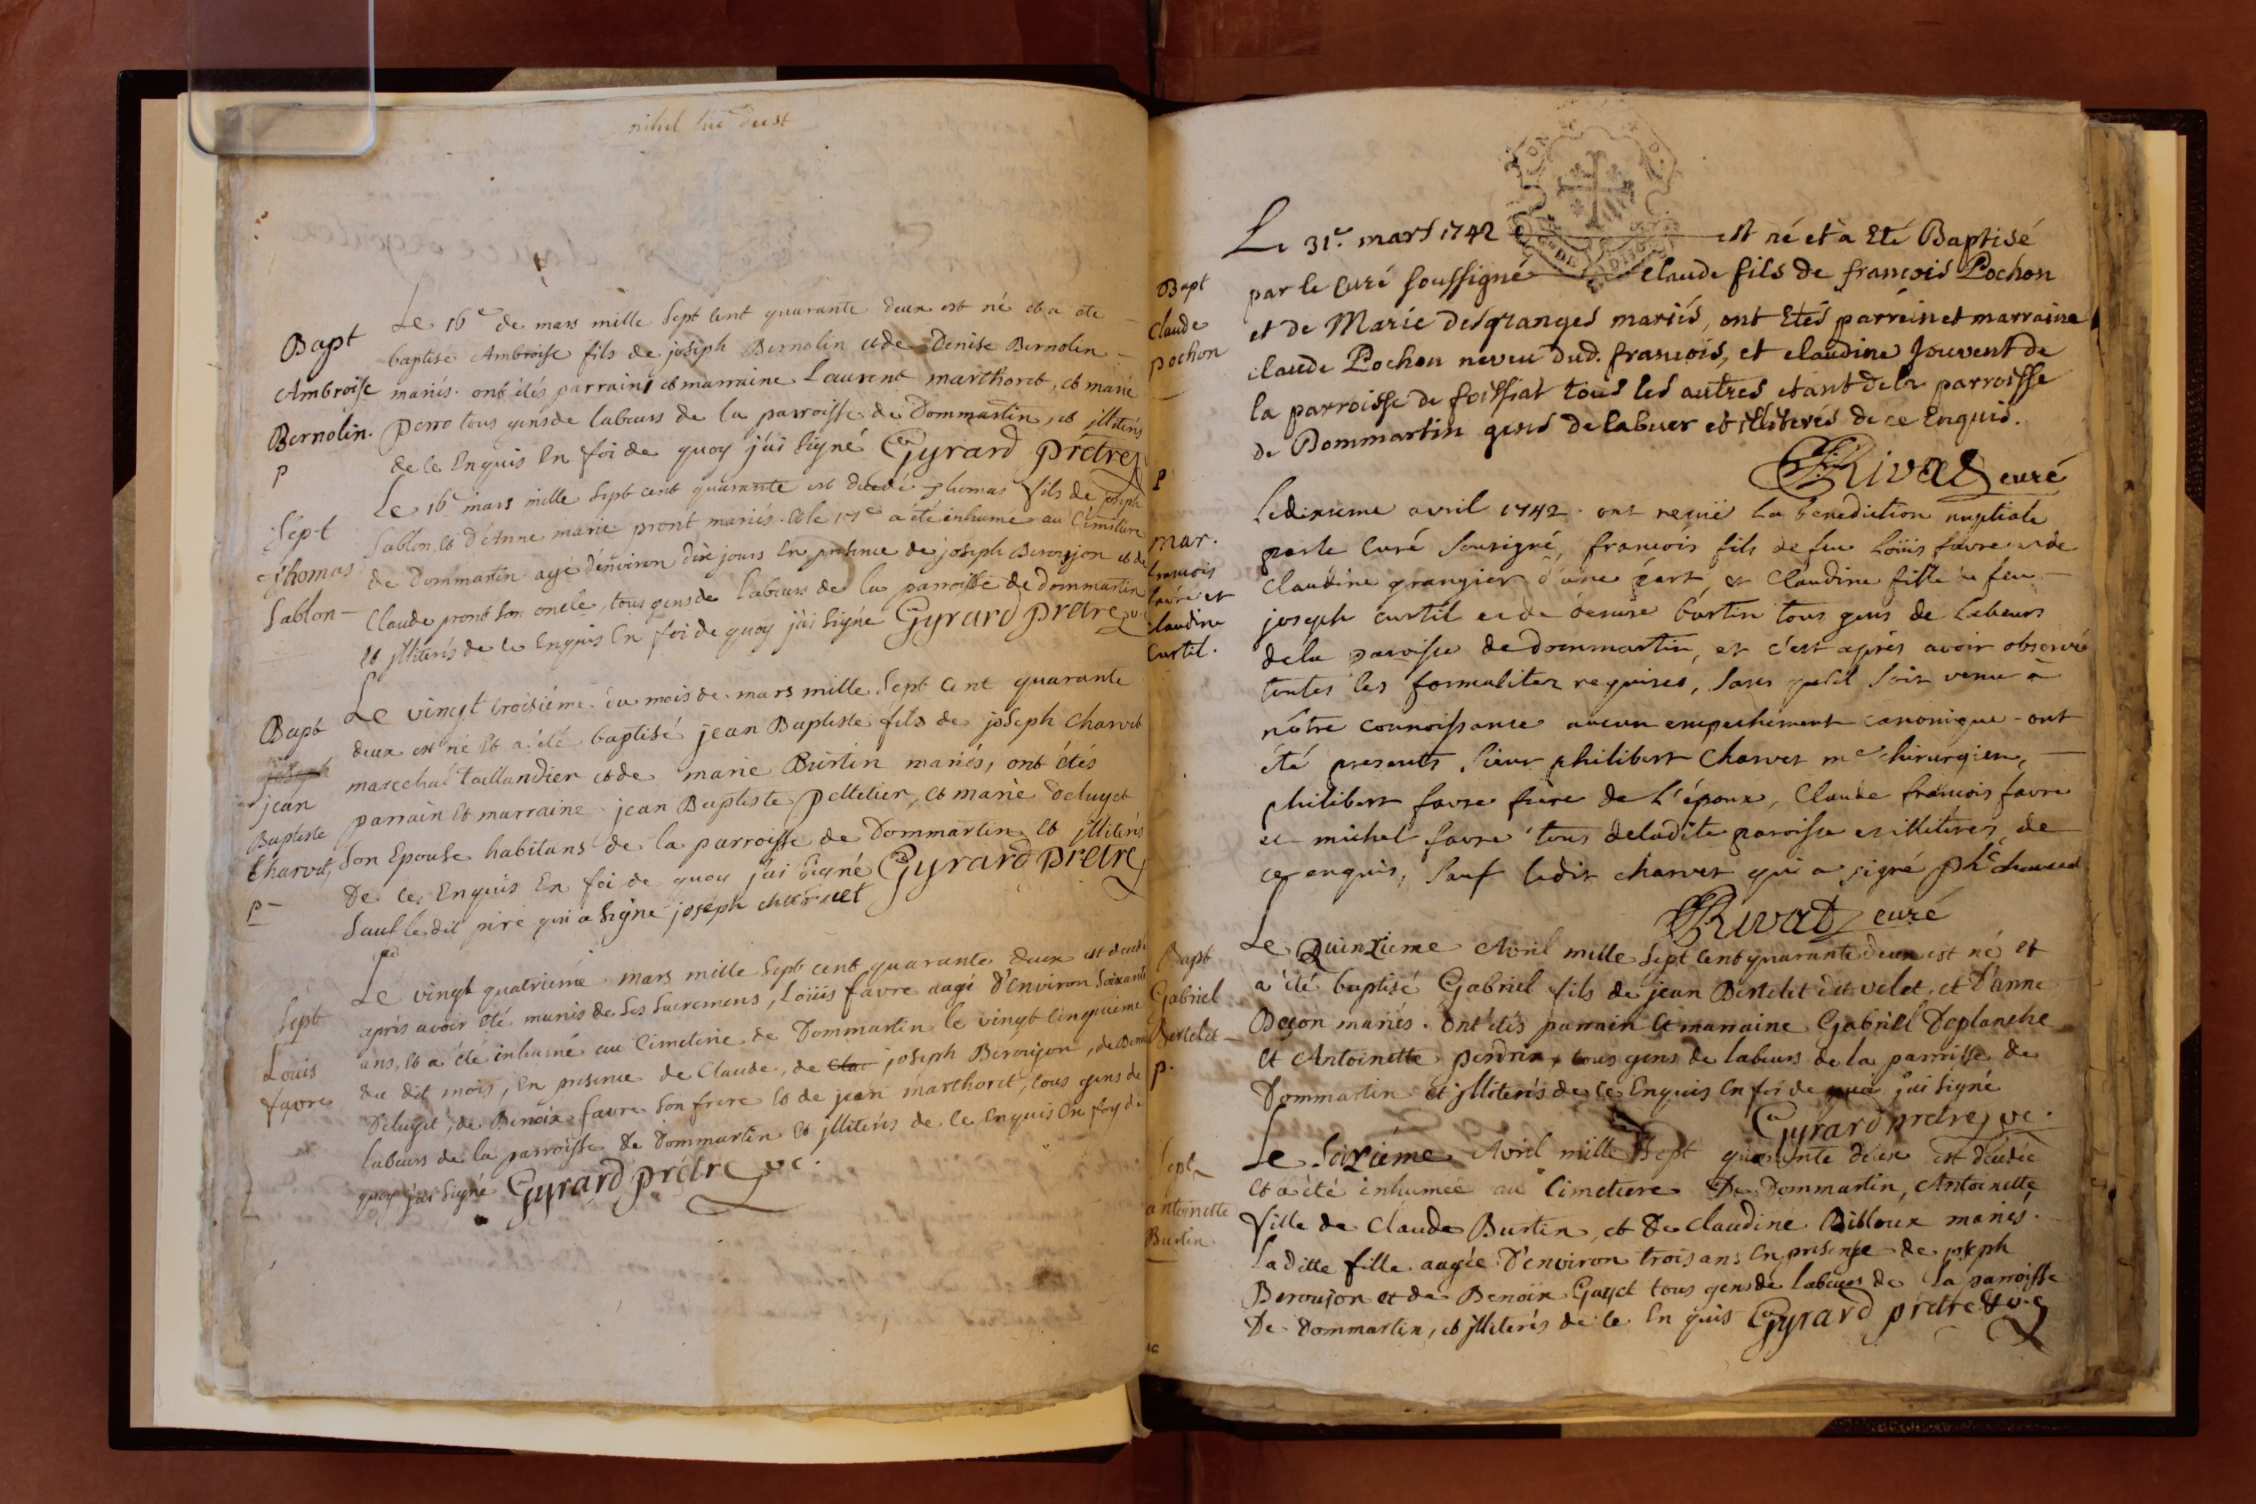 nihil hic deest
Bapt
Ambroise
Bernolin.
p
Le 16e de mars mille sept cent quarante deux est né et a été
baptisé Ambroise fils de joseph Bernolin et de Denise Bernolin
mariés. ont étés parrain et marraine Laurent marthoret, et marie
perro tous gens de labeurs de la parroisse de Dommartin, et jlliterés
de ce Enquis En foi de quoy j'ai signé Gyrard prêtre
Sept
Thomas
Sablon
Le 16e mars mille sept cent quarante est décédé thomas fils de joseph
Sablon, et d'Anne marie pront mariés. et le 17e a été inhumé au Cimetiere
de Dommartin agé d'environ dix jours En presence de joseph Beroujon et de
Claude pront son oncle, tous gens de labeurs de la parroisse de dommartin
et jlliterés de ce Enquis En foi de quoy j'ai signé Gyrard prêtre vc
Bapt
joseph
jean
Baptiste
Charvet
p
Le vingt troisiéme du mois de mars mille sept cent quarante
deux est né et a été baptisé jean Baptiste fils de joseph Charvet
marechal taillandier et de marie Burtin mariés, ont étés
parrain et marraine jean Baptiste pelletier, et marie deluget
son Epouse habitans de la parroisse de Dommartin et jlliterés
de ce Enquis En foi de quoy j'ai signé Gyrard prêtre
sauf le dit pere qui a signé joseph charvet
Sept
Louis
favre
Le vingt quatriéme mars mille sept cent quarante deux est decedé
après avoir été munis de ses sacremens, Loüis favre aagé d'environ soixante
ans, et a été inhumé au Cimetiere de Dommartin le vingt cinquieme
du dit mois, En presence de Claude, de Clau joseph Beroujon, de Benoi
Deluget, de Benoix favre son frere et de jean marthoret, tous gens de
labeurs de la parroisse de Dommartin et jlliterés de ce Enquis En foy de
quoy j'ai signé Gyrard prêtre vc.
Bapt
Claude
pochon
p
Le 31e. mars 1742 est né et a Eté Baptisé
par le Curé soussigné Claude fils de françois Pochon
et de Marie Desgranges mariés, ont Etés parrein et marraine
claude Pochon neveu dud. françois, et claudine Jouvent de
la parroisse de foissiat tous les autres etant de la parroisse
de Dommartin gens de labuer et illiterés de ce Enquis.
Rivat curé
mar.
francois
favre et
claudine
Curtil.
Le dixieme avril 1742. ont reçuë la benediction nuptiale
par le Curé sousigné, francois fils de feu Loüis favre et de
Claudine grangier d'une part, et Claudine fille de feu
joseph Curtil et de denise burtin tous gens de labeurs
de la paroisse de dommartin, et c'est après avoir observé
toutes les formalitez requises, sans qu'il soit venu à
nôtre connoissance aucun empechement canonique. ont
été presents sieur philibert Charvet me chirurgien,
philibert favre frere de l'époux, Claude francois favre
et michel favre tous de ladite paroisse et illiterez de
ce enquis, sauf ledit charvet qui a signé phe charvet
Rivat curé
Bapt
Gabriel
Bertelet
p.
Le Quinzieme Avril mille sept cent quarante deux est né et
a été baptisé Gabriel fils de jean Bertelet dit velet, et d'anne
Begon mariés. ont étés parrain et marraine Gabriel Deplanche
et Antoinette perdrix, tous gens de labeurs de la parroisse de
Dommartin et jlliterés de ce Enquis En foi de quoi j'ai signé
Gyrard prêtre vc.
Sept
antoinette
Burtin.
Le seizieme Avril mille sept quarante deux est décédée
et a été inhumée au Cimetiere De Dommartin, Antoinette
fille de Claude Burtin, et De claudine Billoux mariés.
Laditte fille aagée d'environ trois ans En presence de joseph
Beroujon et de Benoix Gayet tous gens de labeurs de la parroisse
De Dommartin, et jlliterés de ce En quis Gyrard prêtre vc